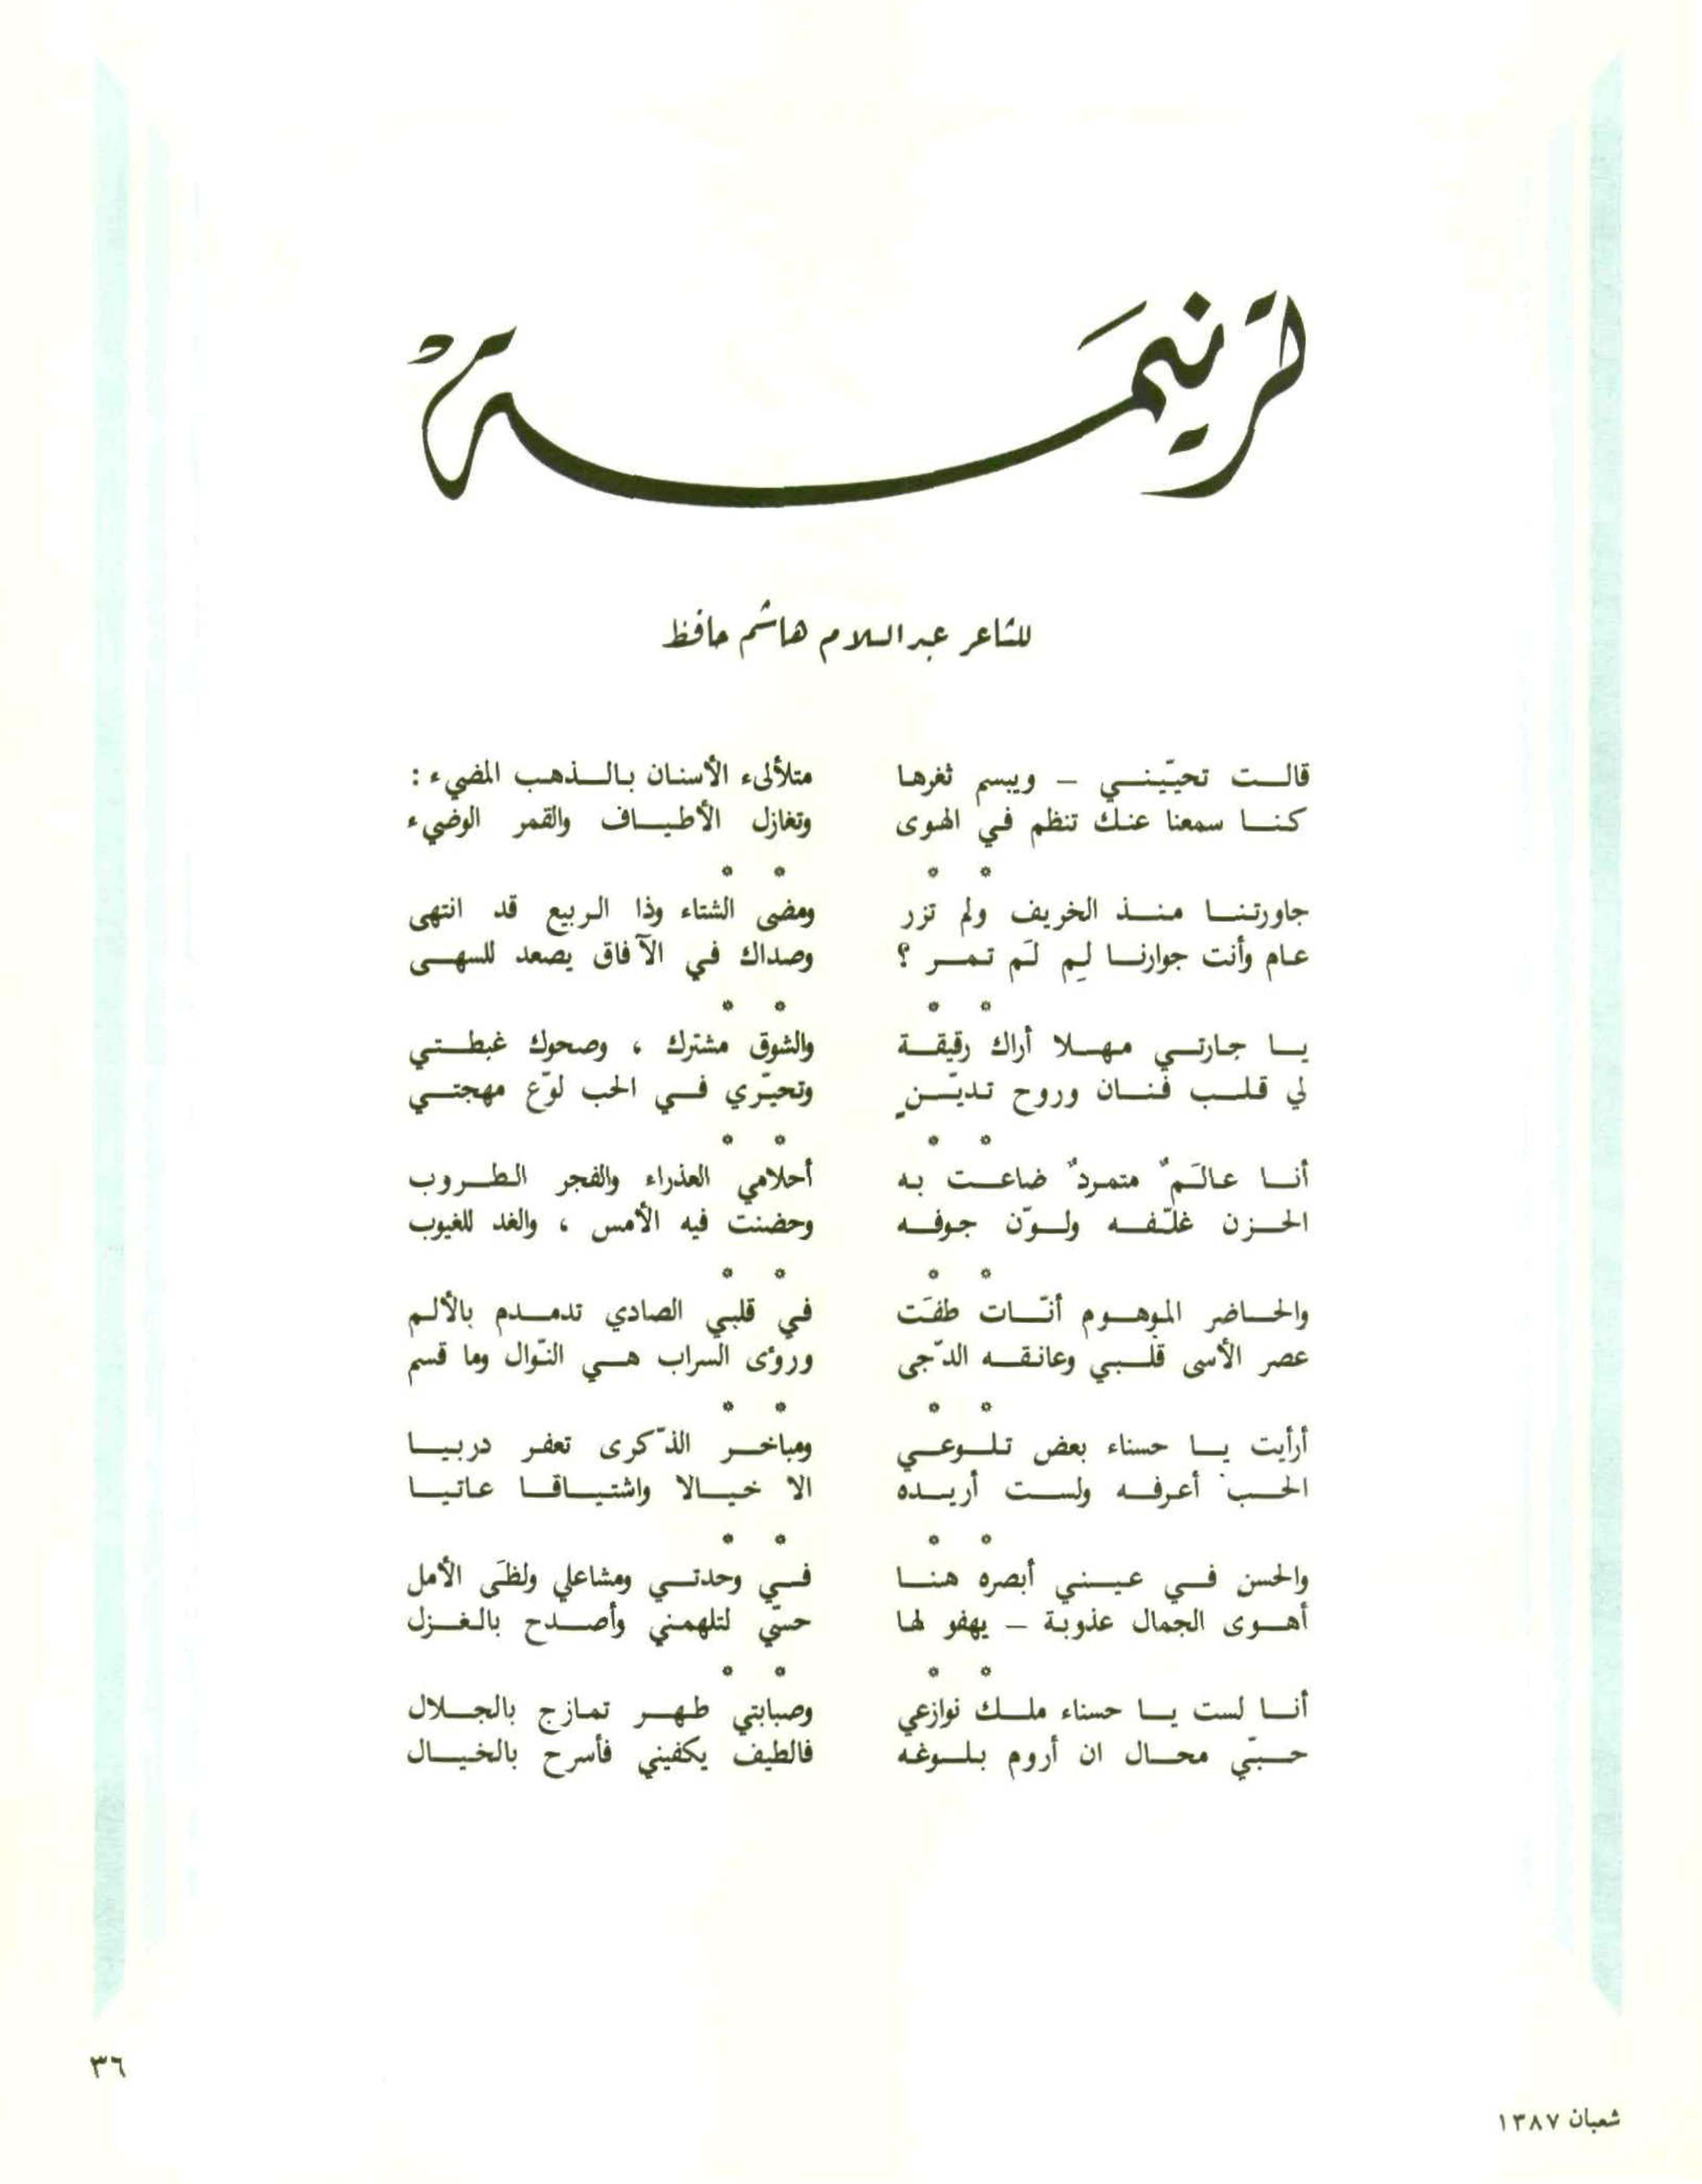 ترنيمَة
للشاعر عبدالسلام هاشم حافظ
قالت تحيّيني – ويبسم ثغرها متلألىء الأسنان بالذهب المضيء :
كنا سمعنا عنك تنظم في الهوى وتغازل الأطياف والقمر الوضيء
* * * *
جاورتنا منذ الخريف ولم تزر ومضى الشتاء وذا الربيع قد انتهى
عام وأنت جوارنا لِم لَم تمر ؟ وصداك في الآفاق يصعد للسهى
* * * *
يا جارتي مهلا أراك رقيقة والشوق مشترك ، وصحوك غبطتي
لي قلب فنان وروح تديّنٍ وتحيّري في الحب لوّع مهجتي
* * * *
أنا عالَمٌ متمردٌ ضاعت به أحلامي العذراء والفجر الطروب
الحزن غلّفه ولوّن جوفه وحضنت فيه الأمس ، والغد للغيوب
* * * *
والحاضر الموهوم أنّات طفَت في قلبي الصادي تدمدم بالألم
عصر الأسى قلبي وعانقه الدّجى ورؤى السراب هي النّوال وما قسم
* * * *
أرأيت يا حسناء بعض تلوعي ومباخر الذّكرى تعفر دربيا
الحب أعرفه ولست أريده الا خيالا واشتياقا عاتيا
* * * *
والحسن في عيني أبصره هنا في وحدتي ومشاعلي ولظَى الأمل
أهوى الجمال عذوبة – يهفو لها حسّي لتلهمني وأصدح بالغزل
* * * *
أنا لست يا حسناء ملك نوازعي وصبابتي طهر تمازج بالجلال
حبّي محال ان أروم بلوغه فالطيف يكفيني فأسرح بالخيال
٣٦
شعبان ١٣٨٧